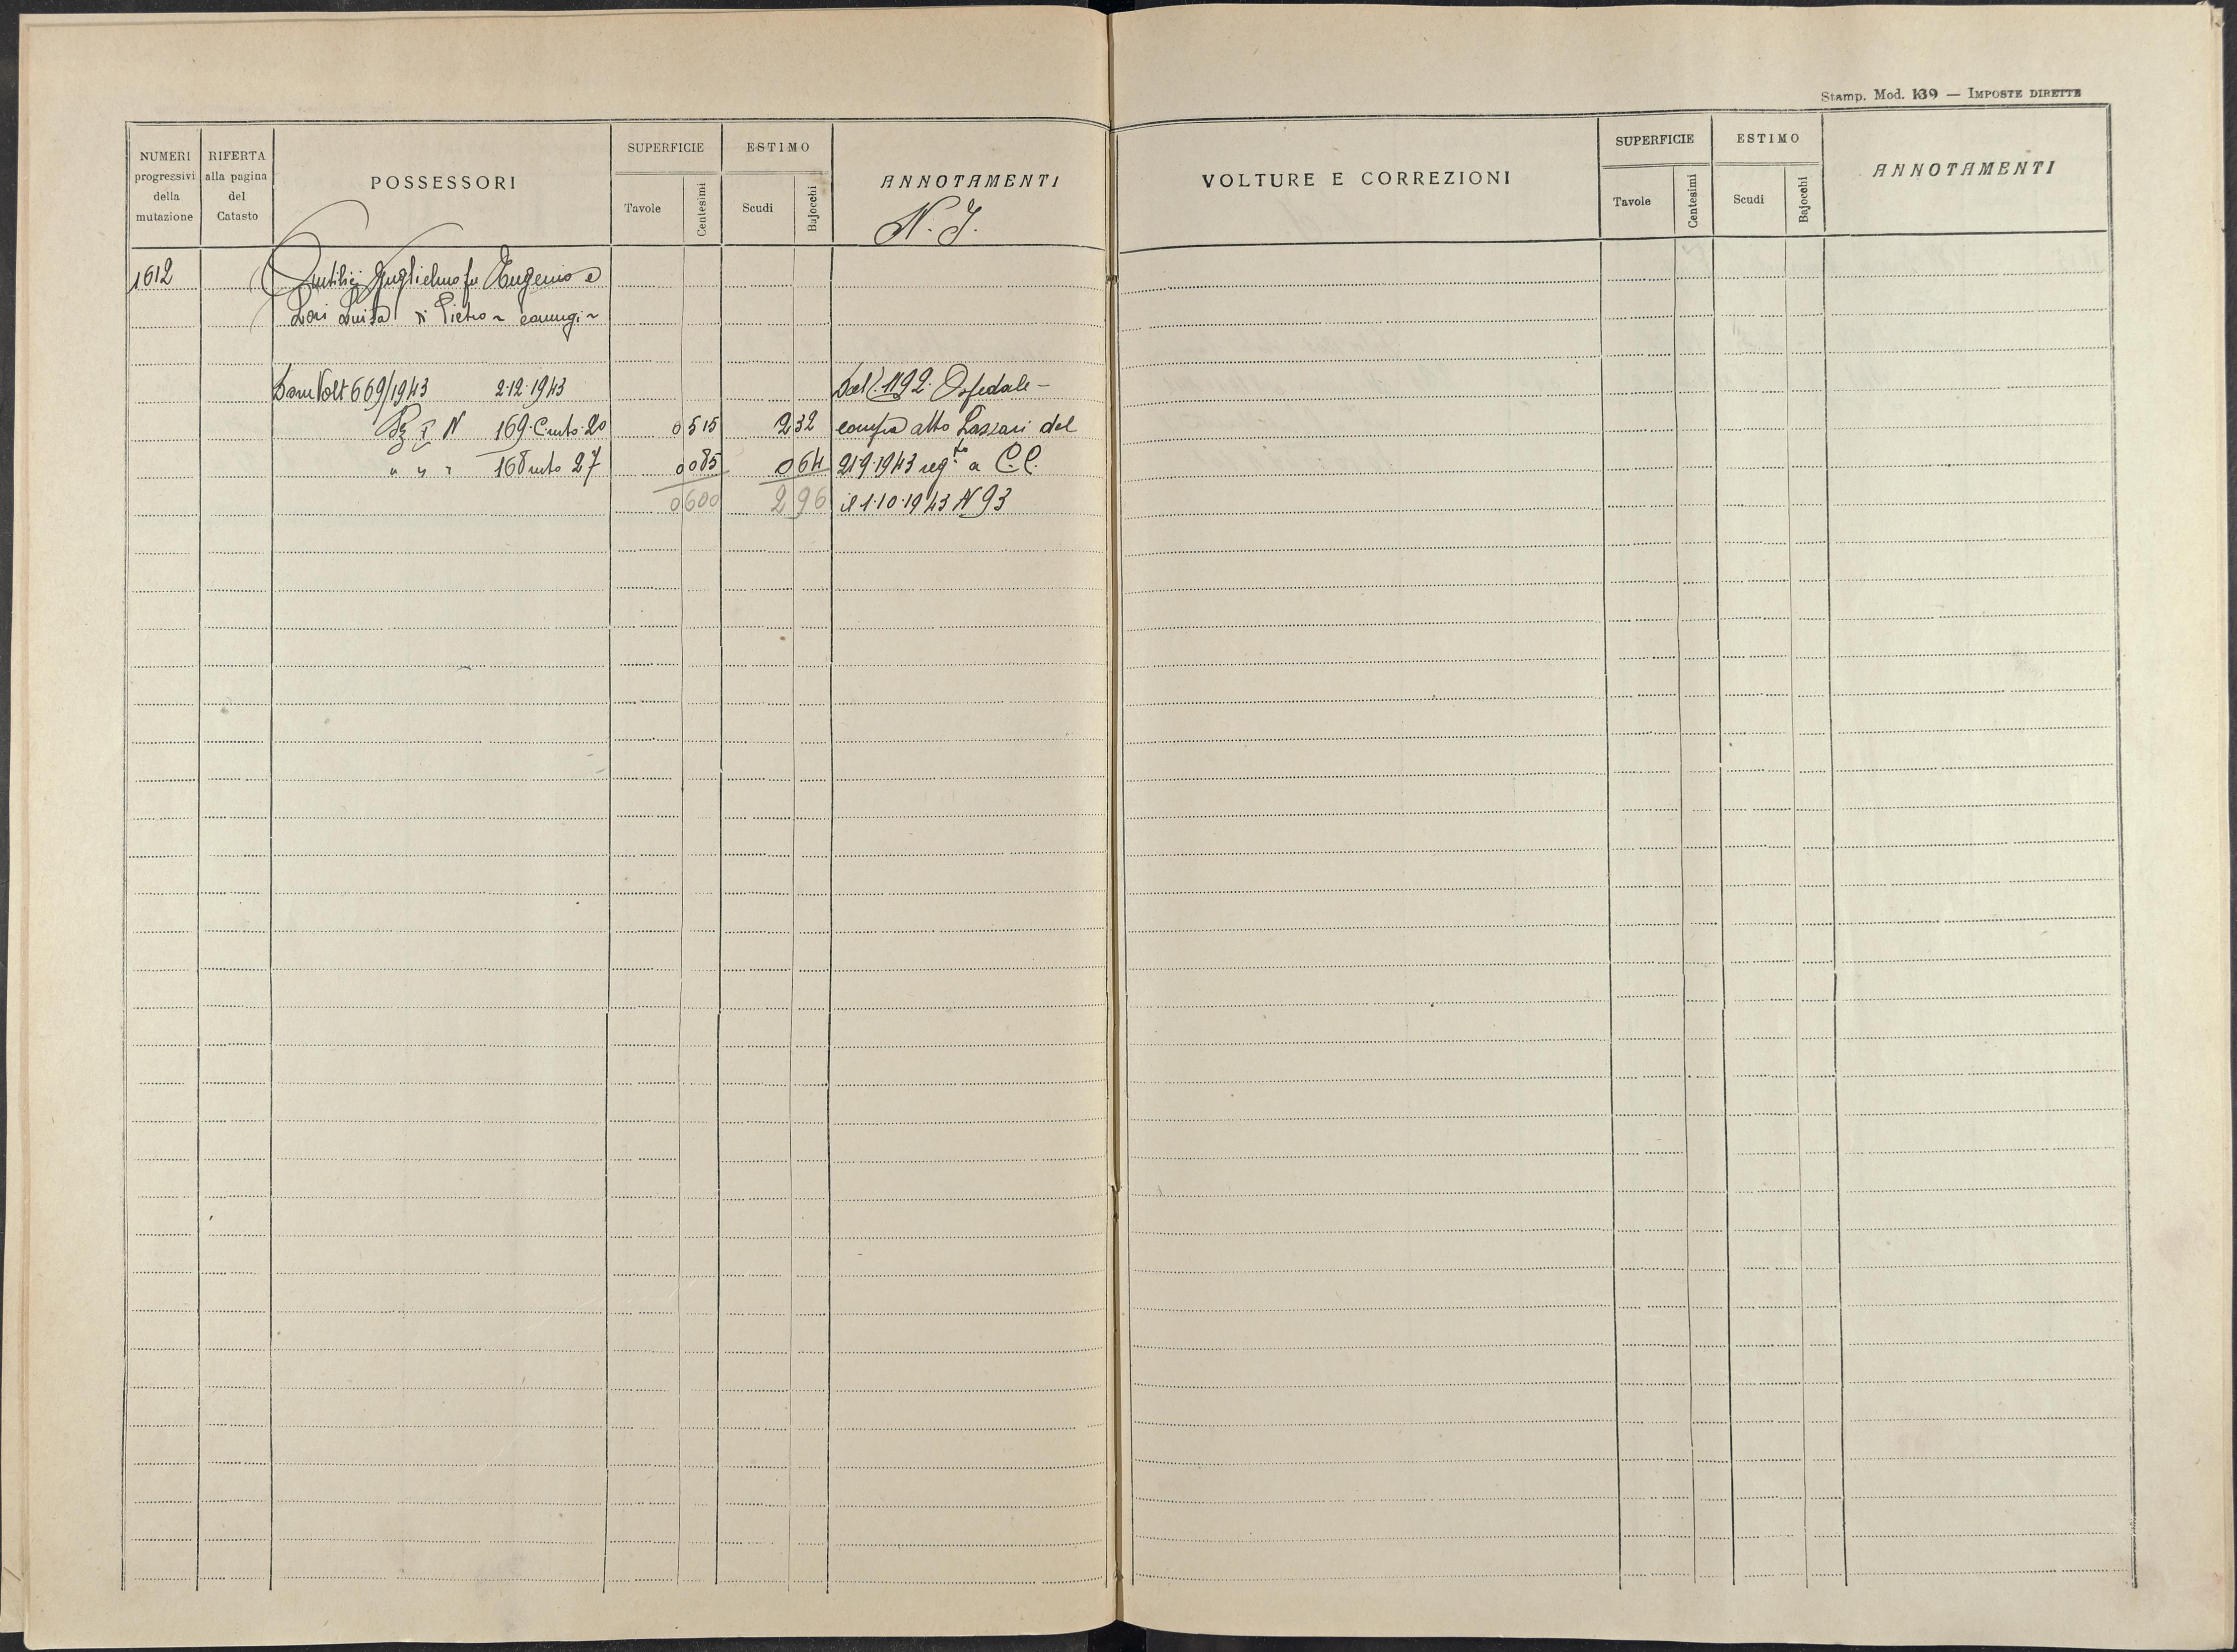 Stamp. Mod. 139 — IMPOSTE DIRETTE
NUMERI progressivi della mutazione
RIFERTA alla pagina del Catasto
POSSESSORI
SUPERFICIE
Tavole
Centesimi
ESTIMO
Scudi
Bajocchi
ANNOTAMENTI
N. I.
VOLTURE E CORREZIONI
SUPERFICIE
Tavole
Centesimi
ESTIMO
Scudi
Bajocchi
ANNOTAMENTI
1612 Guglielmo fu Eugenio e
Luisa di Pietro coniugi
Volt 669/1943 2.12.1943 Dal 1192 Ospedale -
N 169 20 0 515 2 32 compra atto Lazzari del
" " " 168 27 0 085 0 64 21.9.1943 reg.to a C.C.
0 600 2 96 il 1.10.1943 N 93